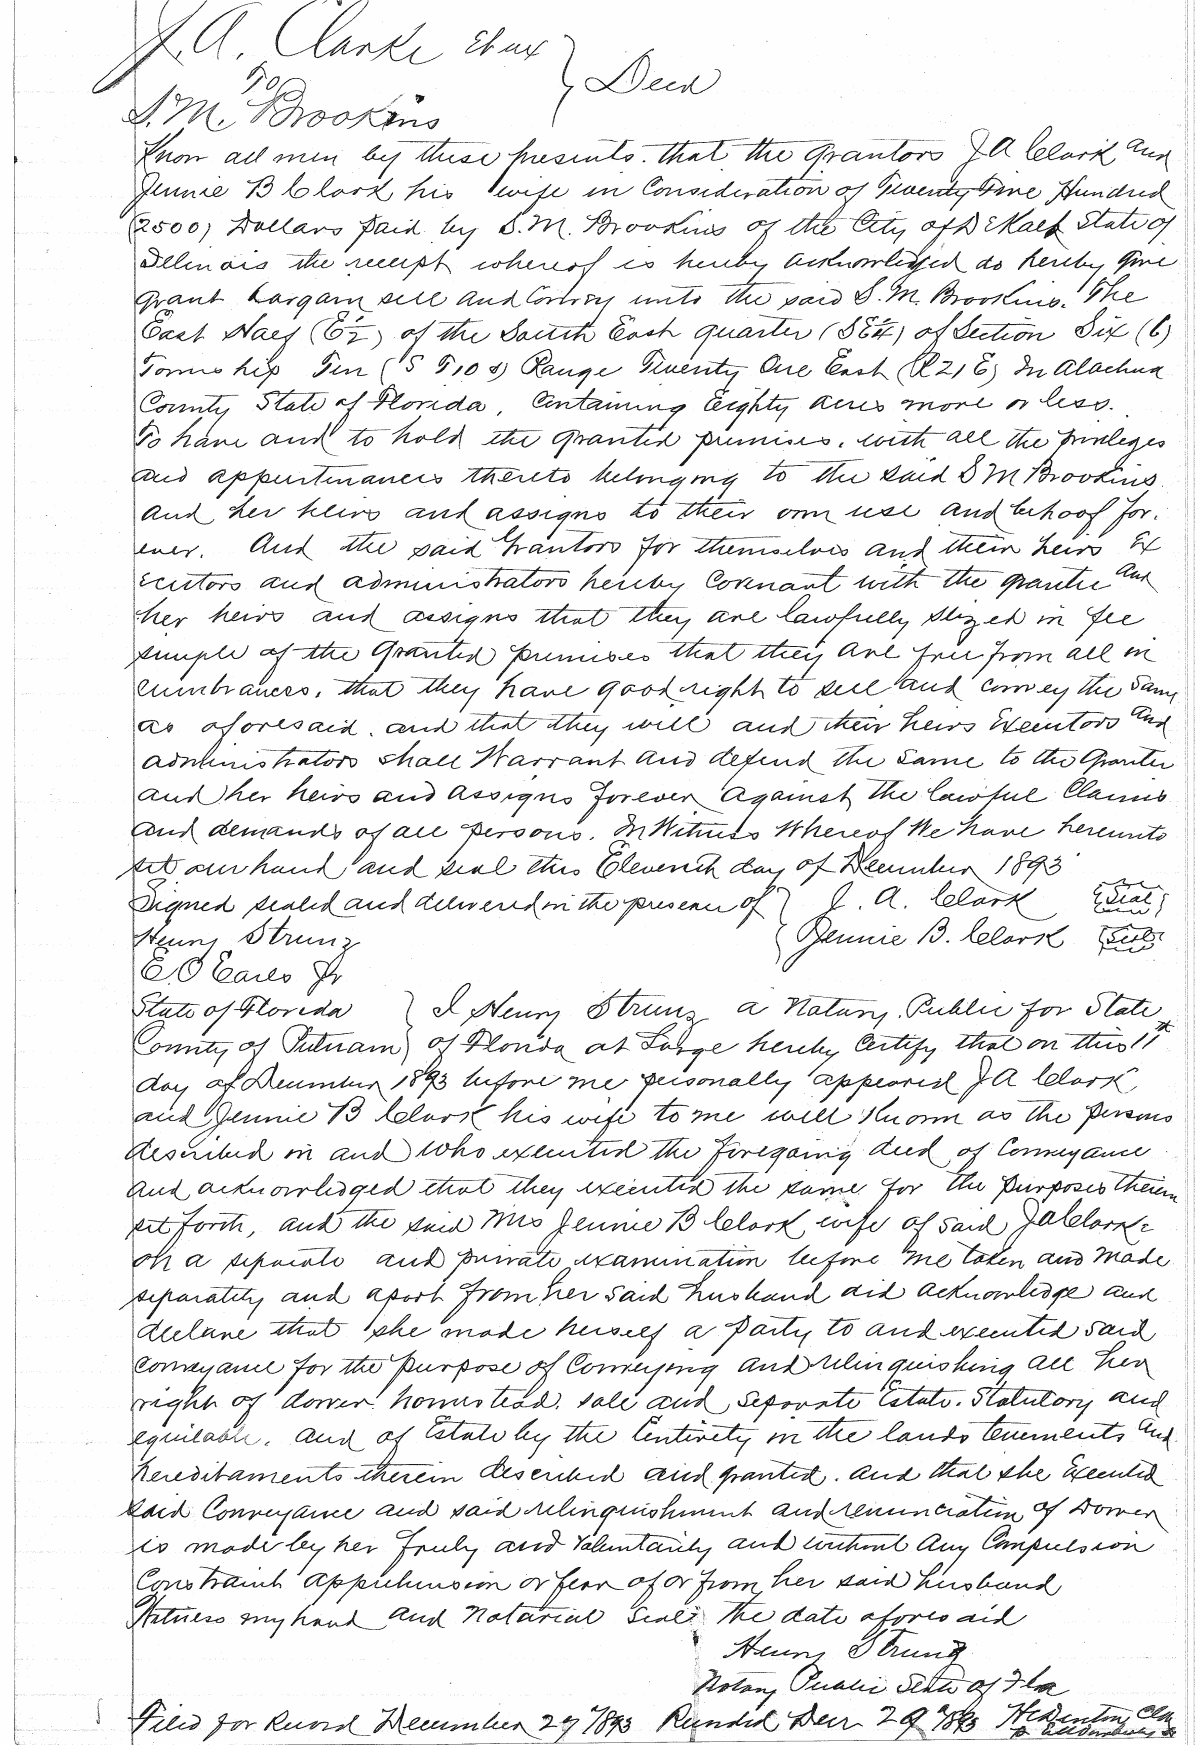 J. A. Clarke Et ux } Deed
To
S. M. Brookins
Know all men by these presents. that the grantors J A Clark and
Jennie B Clark his wife in Consideration of Twenty Five Hundred
(2500) Dollars paid by S. M. Brookins of the City of DeKalb State of
Illinois the receipt whereof is hereby acknowledged do hereby give
grant bargain sell and Convey unto the said S. M. Brookins. The
East Half (E½) of the South East quarter (SE¼) of Section Six (6)
Township Ten (S T10 S) Range Twenty One East (R21E) In Alachua
County State of Florida, Containing Eighty acres more or less.
To have and to hold the granted premises. with all the privileges
and appurtenances thereto belonging to the said S M Brookins
and her heirs and assigns to their own use and behoof for-
ever. And the said Grantors for themselves and their heirs Ex
ecutors and administrators hereby Covenant with the grantee and
her heirs and assigns that they are lawfully siezed in fee
simple of the Granted premises that they are free from all in
cumbrances, that they have good right to sell and convey the same
as aforesaid. and that they will and their heirs Executors and
administrators shall Warrant and defend the same to the Grantee
and her heirs and assigns forever against the lawful Claims
and demands of all persons. In Witness Whereof We have hereunto
set our hand and seal this Eleventh day of December 1893
Signed sealed and delivered in the presence of } J. A. Clark (Seal)
Henry Strunz { Jennie B. Clark (Seal)
E O Earls Jr
State of Florida } I Henry Strunz a Notary Public for State
County of Putnam } of Florida at Large hereby Certify that on this 11th
day of December 1893 before me personally appeared J A Clark
and Jennie B Clark his wife to me well Known as the persons
described in and who executed the foregoing deed of Conveyance
and acknowledged that they executed the same for the purposes therein
set forth, and the said Mrs Jennie B Clark wife of said J A Clark
on a separate and private examination before me taken and made
separately and apart from her said husband did acknowledge and
declare that she made herself a party to and executed said
conveyance for the purpose of Conveying and relinquishing all her
right of dower homestead. sole and separate Estate. Statutory and
equitable. and of Estate by the Entirety in the lands tenements and
hereditaments therein described and granted. and that she Executed
said Conveyance and said relinquishment and renunciation of Dower
is made by her Freely and Voluntarily and without any Compulsion
Constraint apprehension or fear of or from her said husband
Witness my hand and Notarial Seal the date aforesaid
Henry Strunz
Notary Public State of Fla
Filed for Record December 29 1893 Recorded Decr 29 1893 Clk